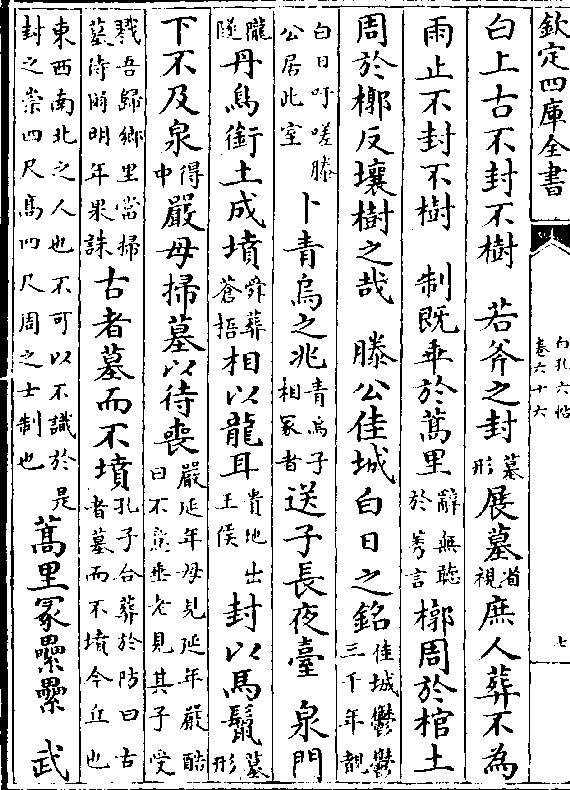 欽定四庫全書
白孔六帖
卷六十六
七
白上古不封不樹 若斧之封墓形展墓省視庶人葬不為
雨止不封不樹 制既垂於蒿里辭無聽於芻言槨周於棺土
周於槨反壤樹之哉 滕公佳城白日之銘佳城鬱鬱三千年覩
白日吁嗟滕公居此室卜青烏之兆青烏子相冢者送子長夜臺 泉門
隴隧丹鳥銜土成墳舜葬蒼梧相以龍耳貴地出王侯封以馬鬛墓形
下不及泉得中嚴母掃墓以待喪嚴延年母見延年嚴酷曰不意垂老見其子受
戮吾歸鄉里當掃墓待爾明年果誅古者墓而不墳孔子合葬於防曰古者墓而不墳今丘也
東西南北之人也不可以不識於是封之崇四尺高四尺周之士制也蒿里冢纍纍 武